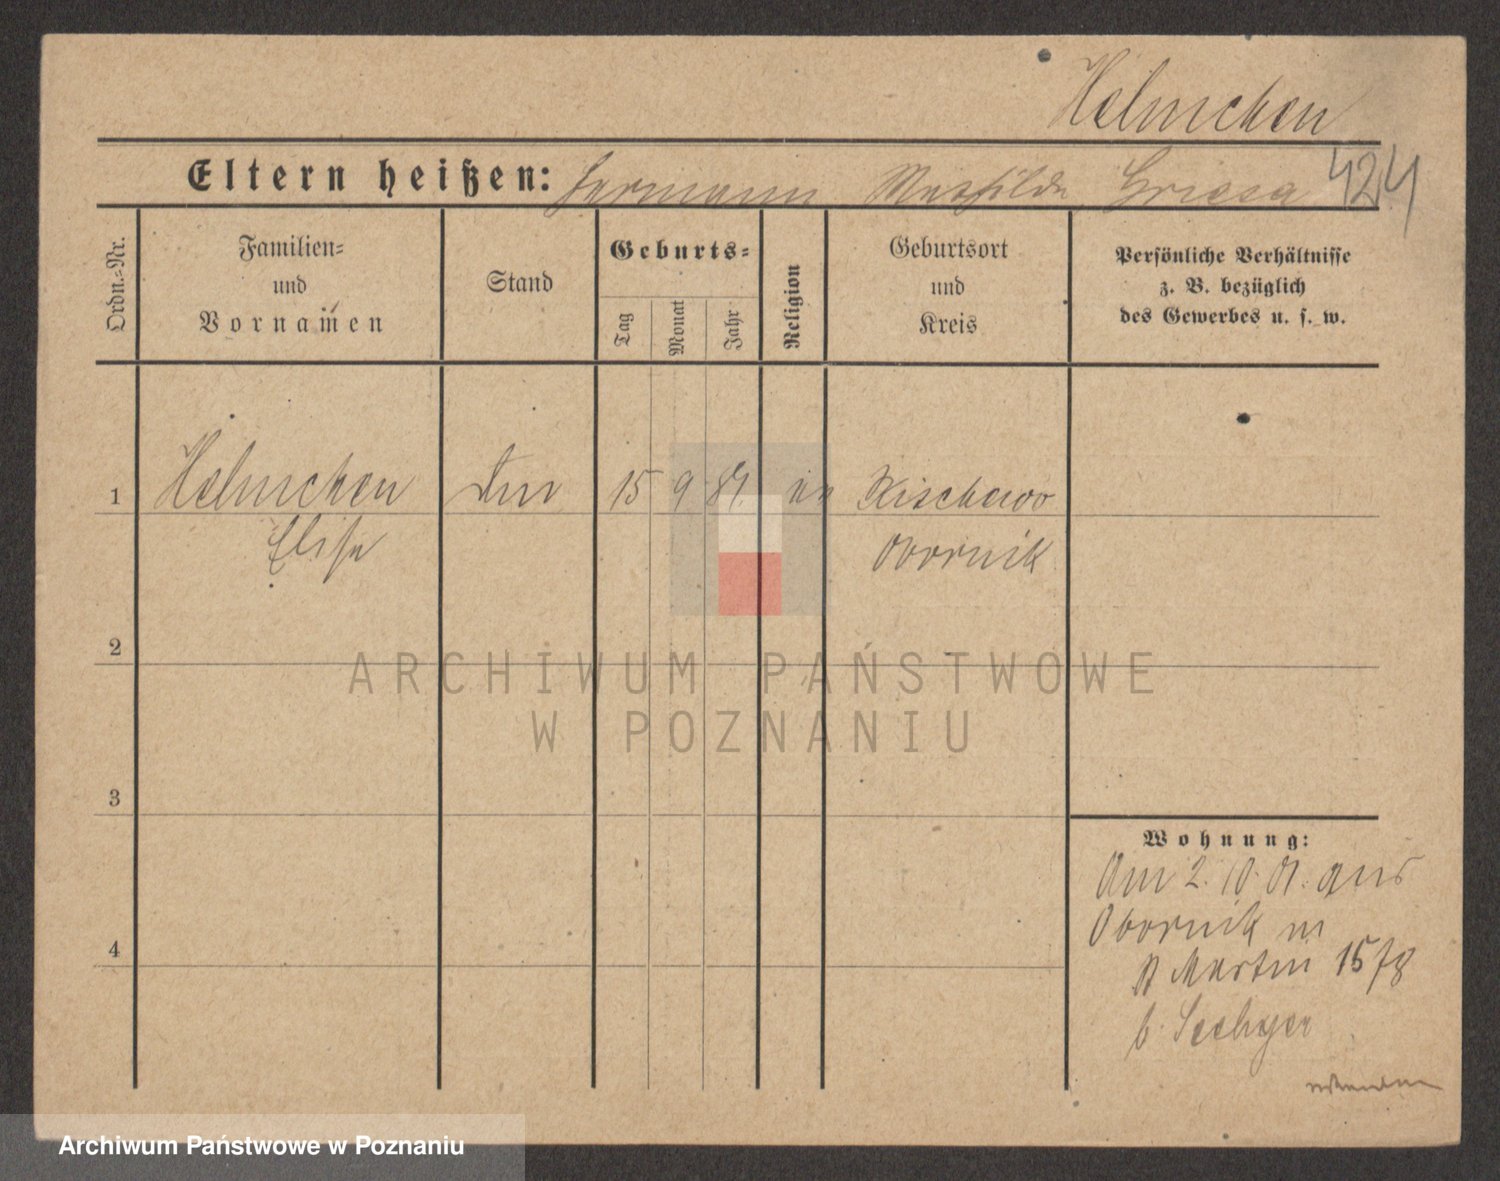 Helmchen
Eltern heißen: Hermann Mathilde Griesa 424
Ordn.=Nr.
Familien=
und
Vornamen
Stand
Geburts=
Tag
Monat
Jahr
Religion
Geburtsort
und
Kreis
Persönliche Verhältnisse
z. B. bezüglich
des Gewerbes u. s. w.
1 Helmchen 15 9 81 Kischewo
Elise Obornik
2
3
4
Wohnung:
Am 2. 10. 01. aus
Obornik n
St Martin 15/78
b.
ARCHIWUM PAŃSTWOWE
W POZNANIU
Archiwum Państwowe w Poznaniu